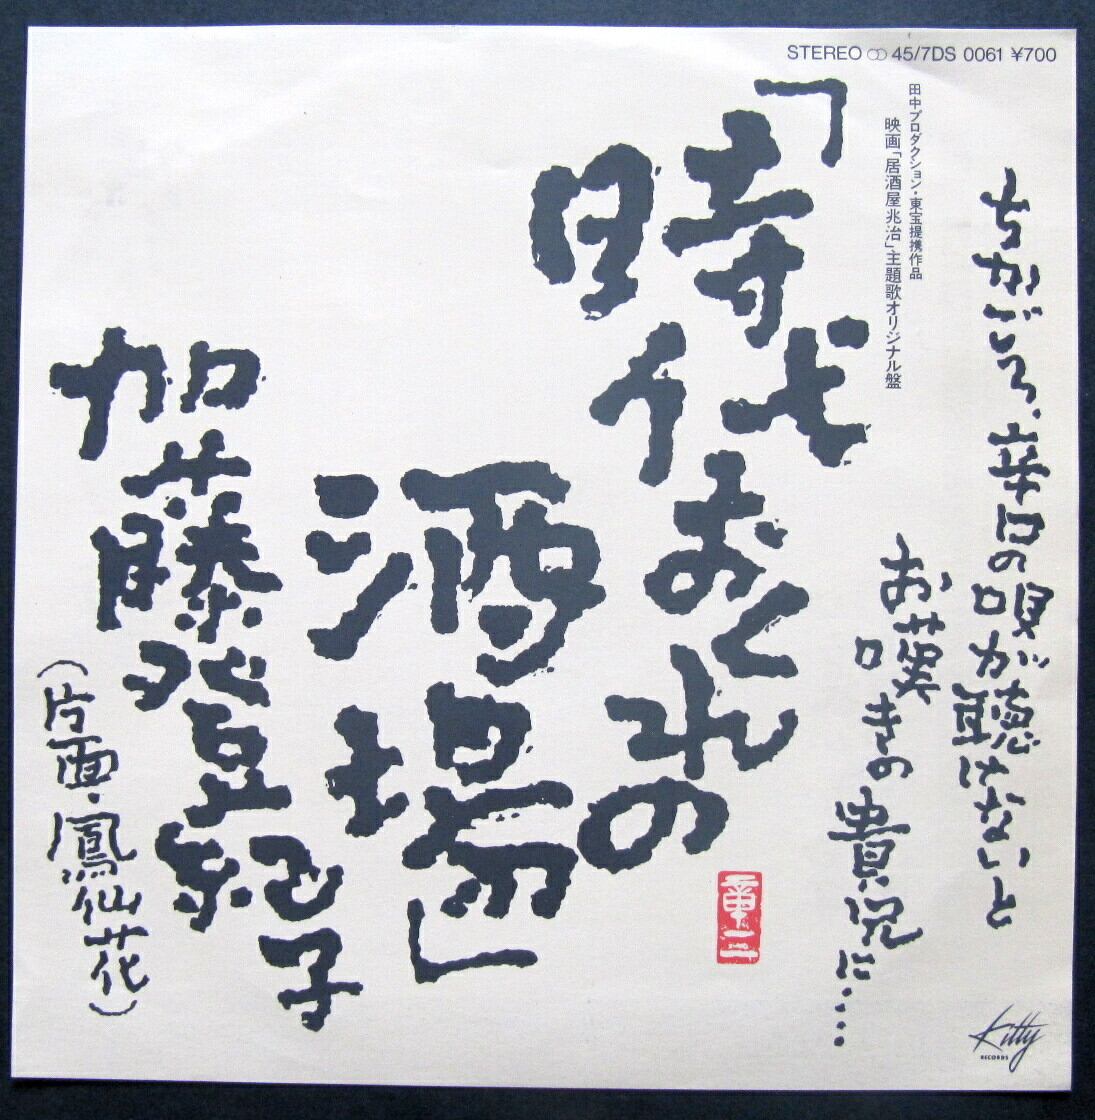 STEREO ○○ 45/7DS 0061 ¥700
田中プロダクション・東宝提携作品
映画「居酒屋兆治」主題歌オリジナル盤
ちかごろ、辛口の唄が聴けないと
お嘆きの貴兄に……
「時代おくれの
酒場」
加藤登紀子
(片面・鳳仙花)
Kitty
RECORDS